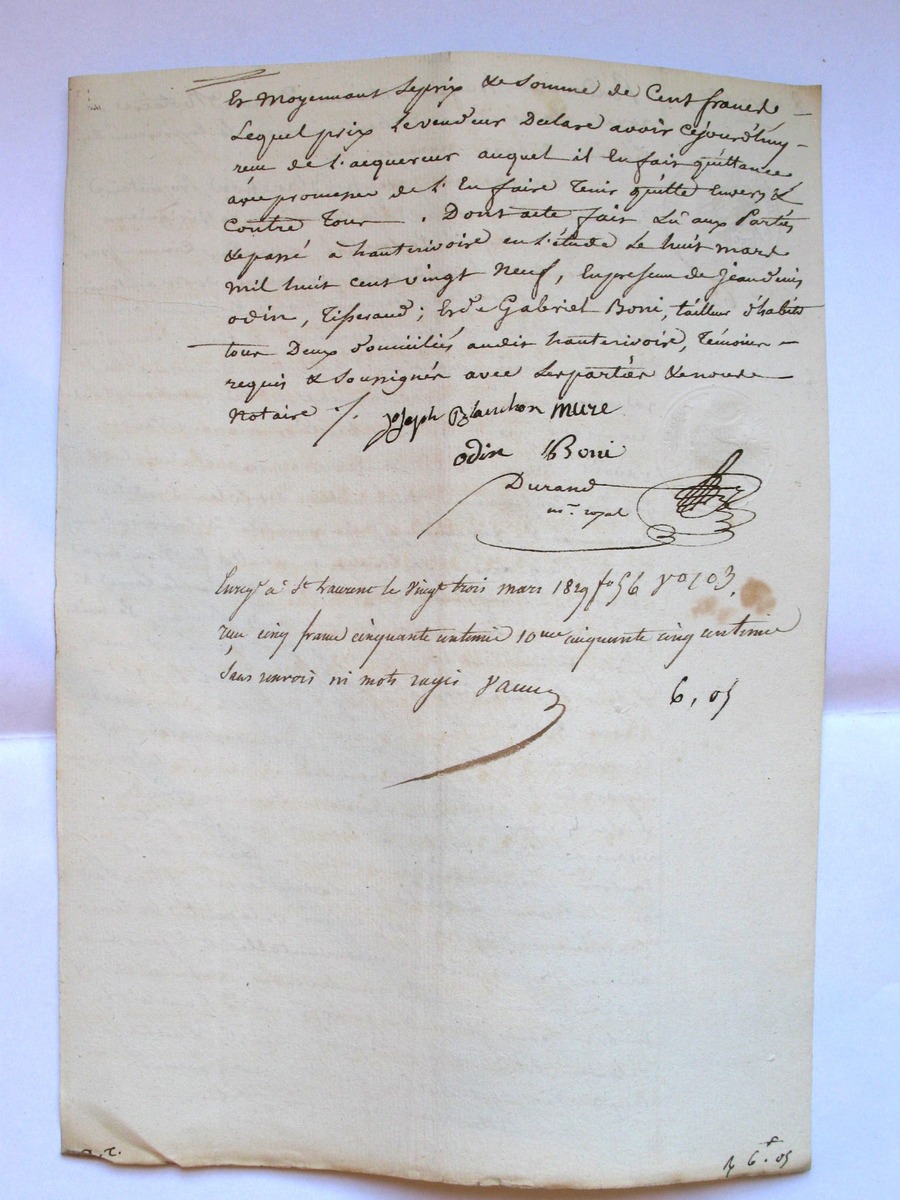 Et Moyennant Le prix & Somme de Cent francs
Lequel prix Le vendeur Declare avoir Cejourd'huy
reçu de L'acquereur auquel il En fait quittance
avec promesse de L'En faire Tenir quitte Envers &
Contre Tous. Dont acte fait Lû aux Parties
& passé à hauterivoire en L'étude Le huit mars
Mil huit cent vingt Neuf, En presence de jean denis
odin, Tisserand; Et de Gabriel Boni, tailleur d'habits
tous Deux domiciliés audit hauterivoire, Témoins
requis & Soussignés avec Les parties & nous
Notaire /.
Joseph Blanchon Mure
odin Boni
Durand
nre. royal
Enregé à St Laurent le Vingt trois mars 1829 fo 56 vo
reçu cinq francs cinquante centimes 10me cinquante cinq centimes
Sans renvois ni mots rayés
6, 05
6f. 05